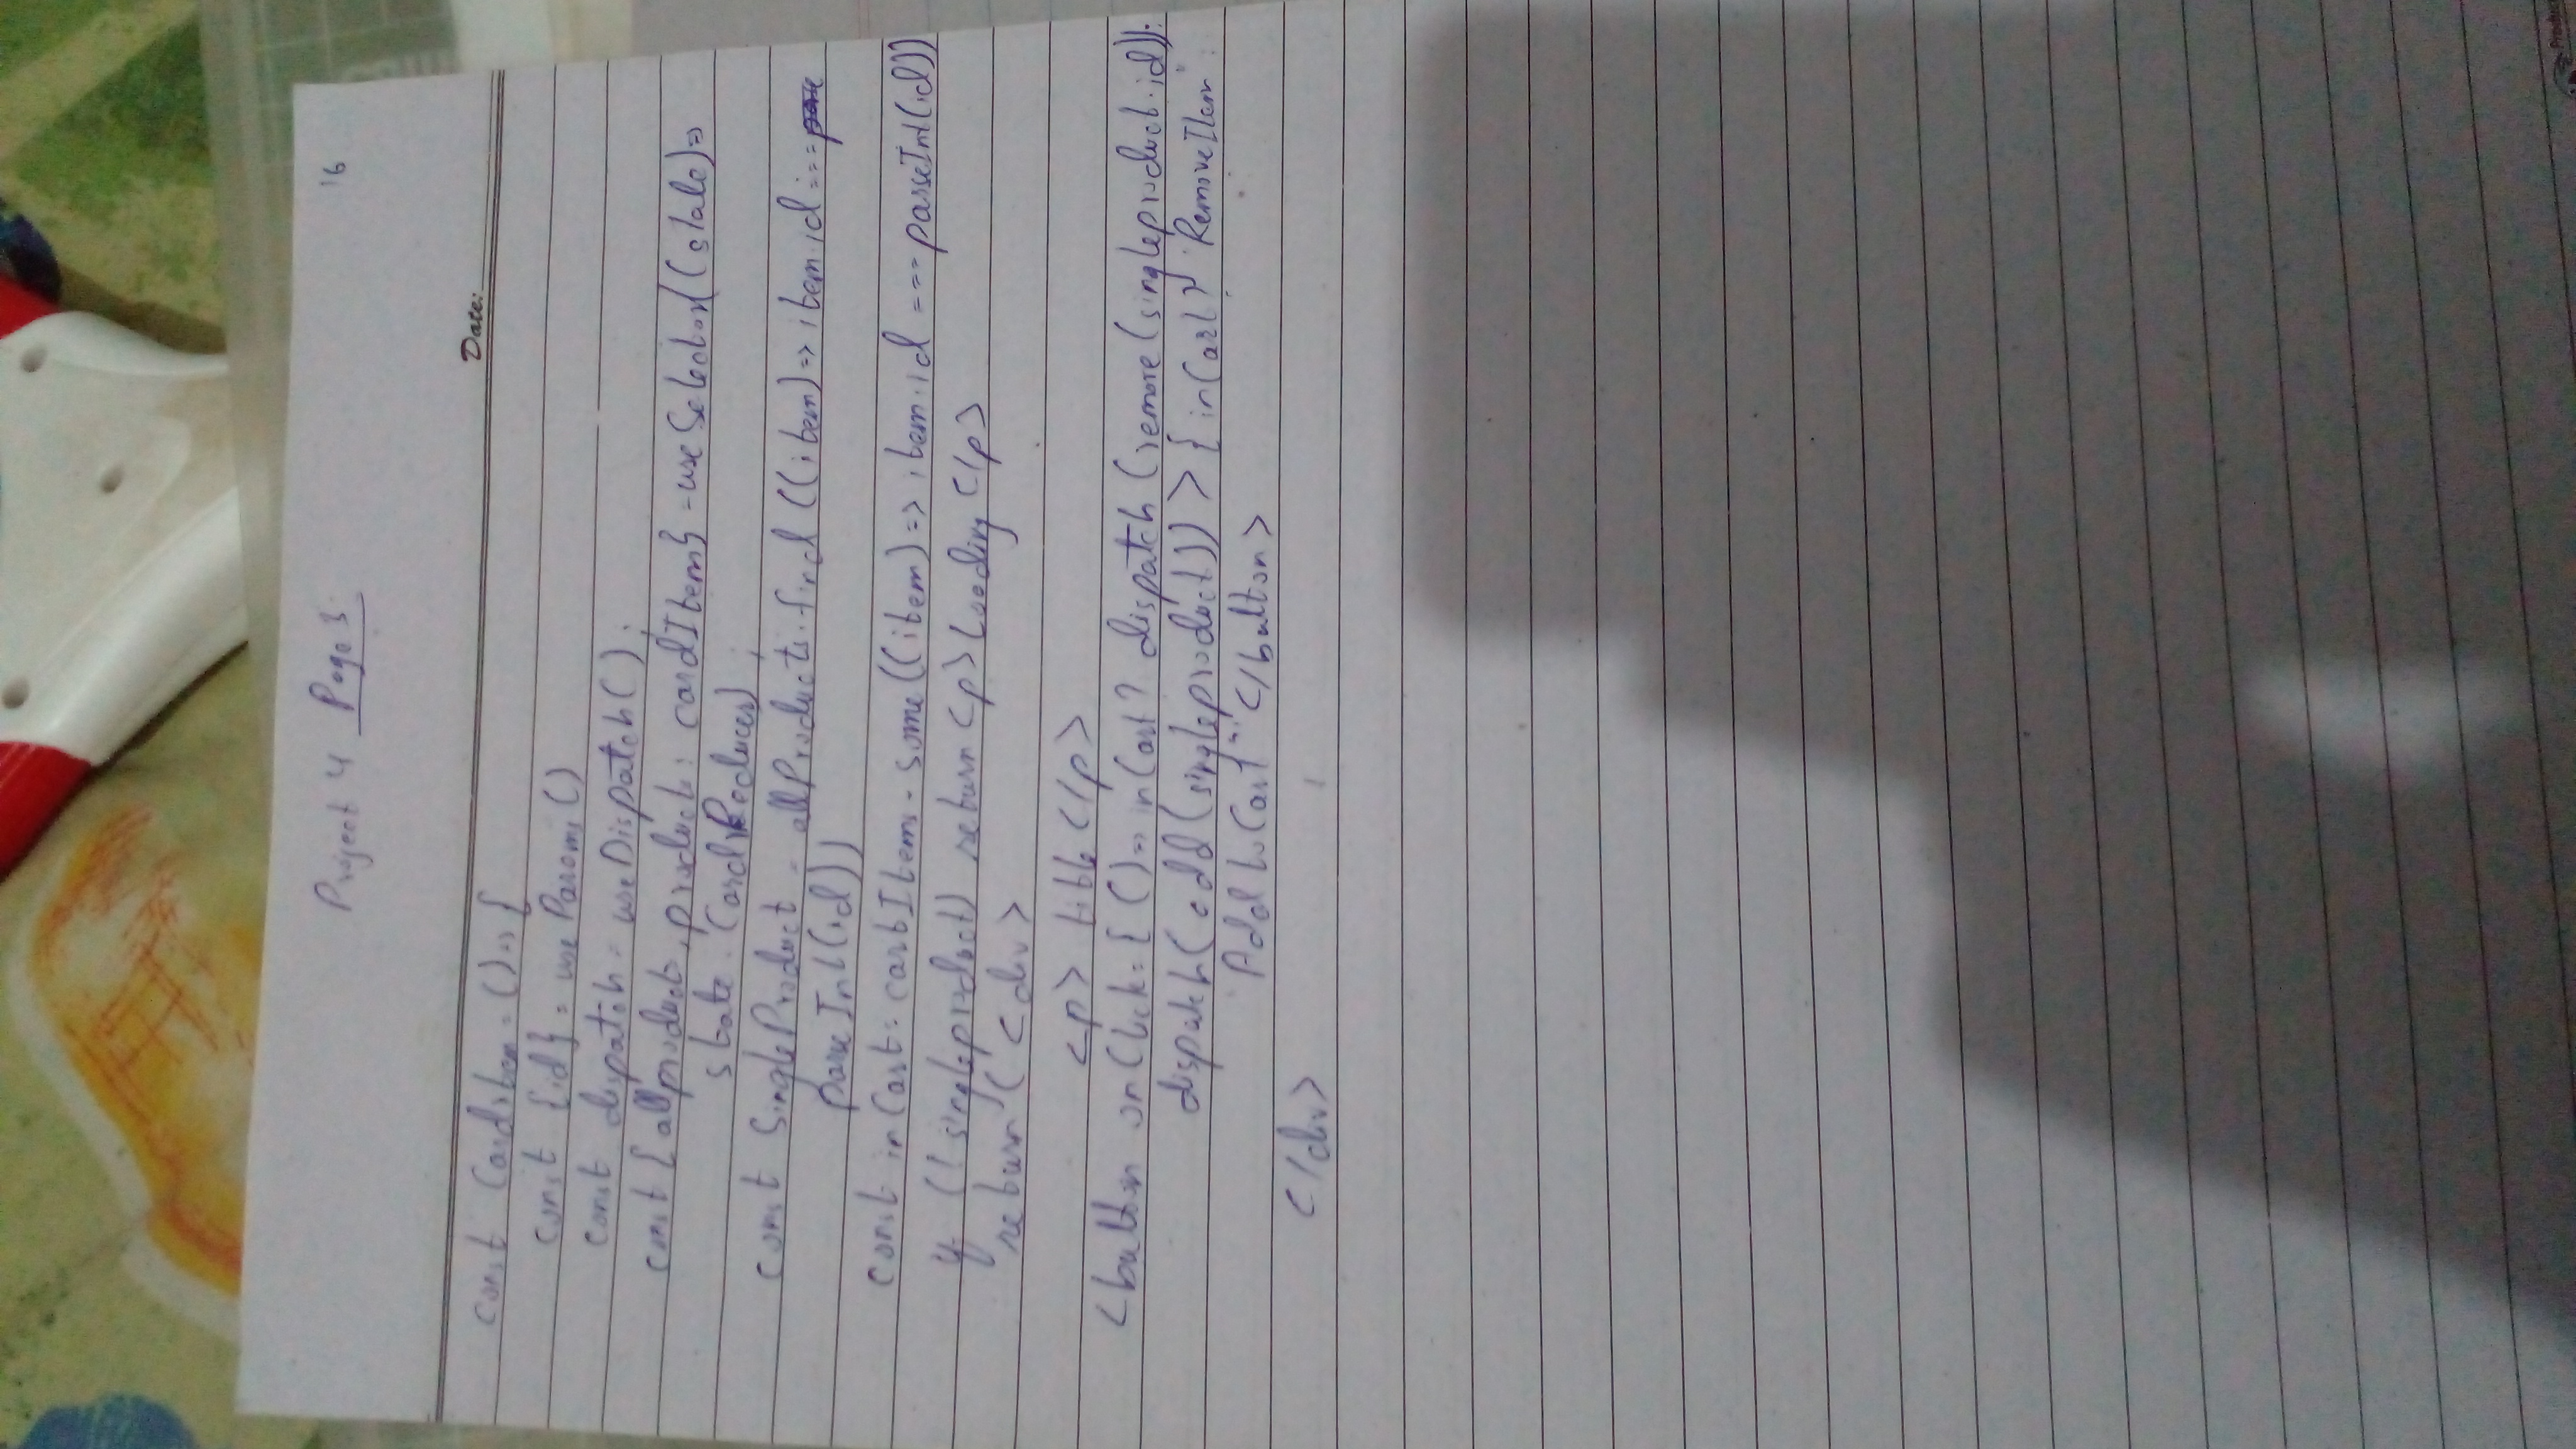 16
Project 4 Page 3
Date:
const Carditem = () => {
const {id} = useParams()
const dispatch = useDispatch();
const { allproducts, products: cardItems} = useSelector((state) =>
state.CardReducer);
const SingleProduct = allProducts.find((item) => item.id ===
parseInt(id))
const inCart = cartItems.some((item) => item.id === parseInt(id))
if (!singleproduct) return <p> Loading </p>
return ( <div>
<p> title </p>
<button onClick={ () => inCart ? dispatch (remove(singleproduct.id)):
dispatch( add (singleproduct)) > { inCart ? "Remove Item" :
Add to Cart" </button>
</div>